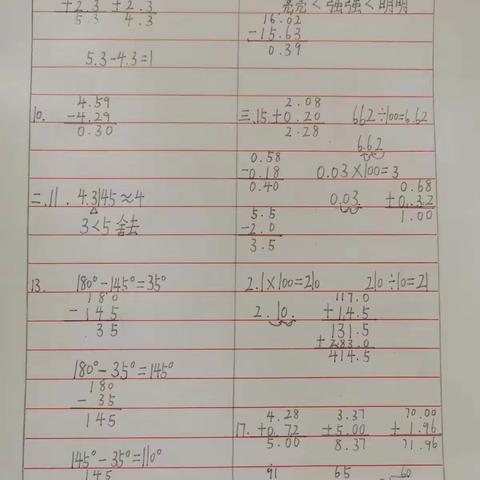 +2.3 +2.3
5.3 4.3
5.3-4.3=1
10. 4.59
-4.29
0.30
二.11. 4.3145≈4
3<5 舍去
13. 180°-145°=35°
180
-145
35
180°-35°=145°
180
-35
145
145°-35°=110°
145
亮亮<强强<明明
16.02
-15.63
0.39
三.15. 2.08 662÷100=6.62
+0.20
2.28
6.62
0.58
-0.18 0.03×100=3
0.40
0.03
0.68
+0.32
1.00
5.5
-2.0
3.5
2.1×100=210 210÷10=21
2.10.
117.0
+14.5
131.5
+283.0
414.5
17. 4.28 3.37 70.00
+0.72 +5.00 +1.96
5.00 8.37 71.96
91 65 60